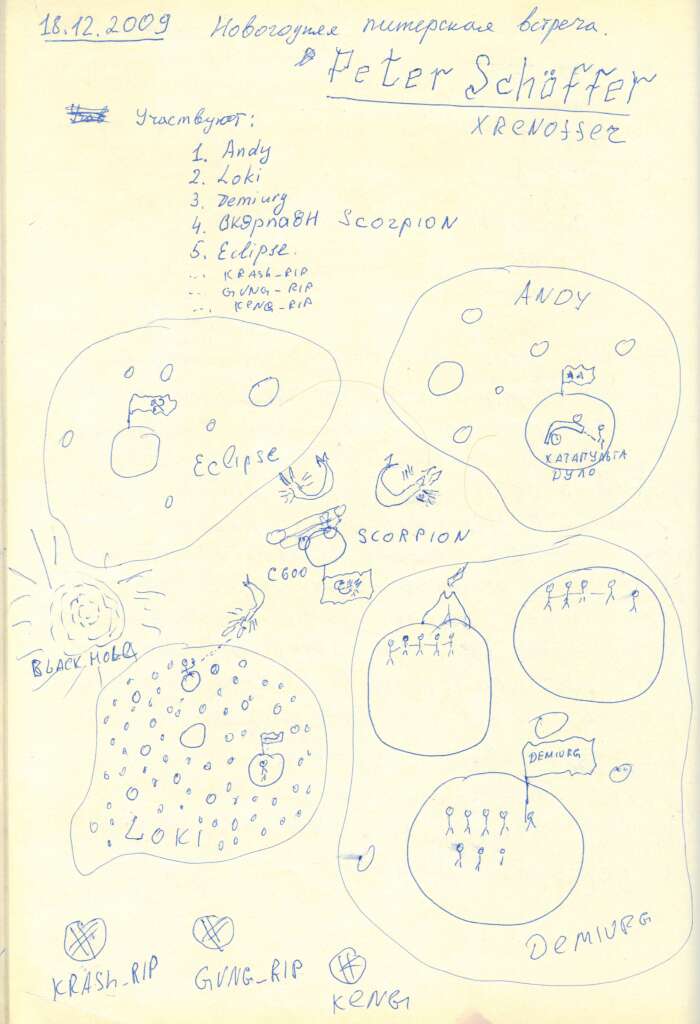 18.12.2009 Новогодняя питерская встреча.
Peter Schöffer
XRENOffer
Участвуют:
1. Andy
2. Loki
3. Demiurg
4. Scorpion
5. Eclipse.
... KRASH_RIP
... GVNG_RIP
... KENG_RIP
ANDY
AA
Eclipse
КАТАПУЛЬТА
ДУЛО
SCORPION
C600
BLACK HOLE
DEMIURG
LOKI
DEMIURG
KRASH_RIP
GVNG_RIP
KENGI